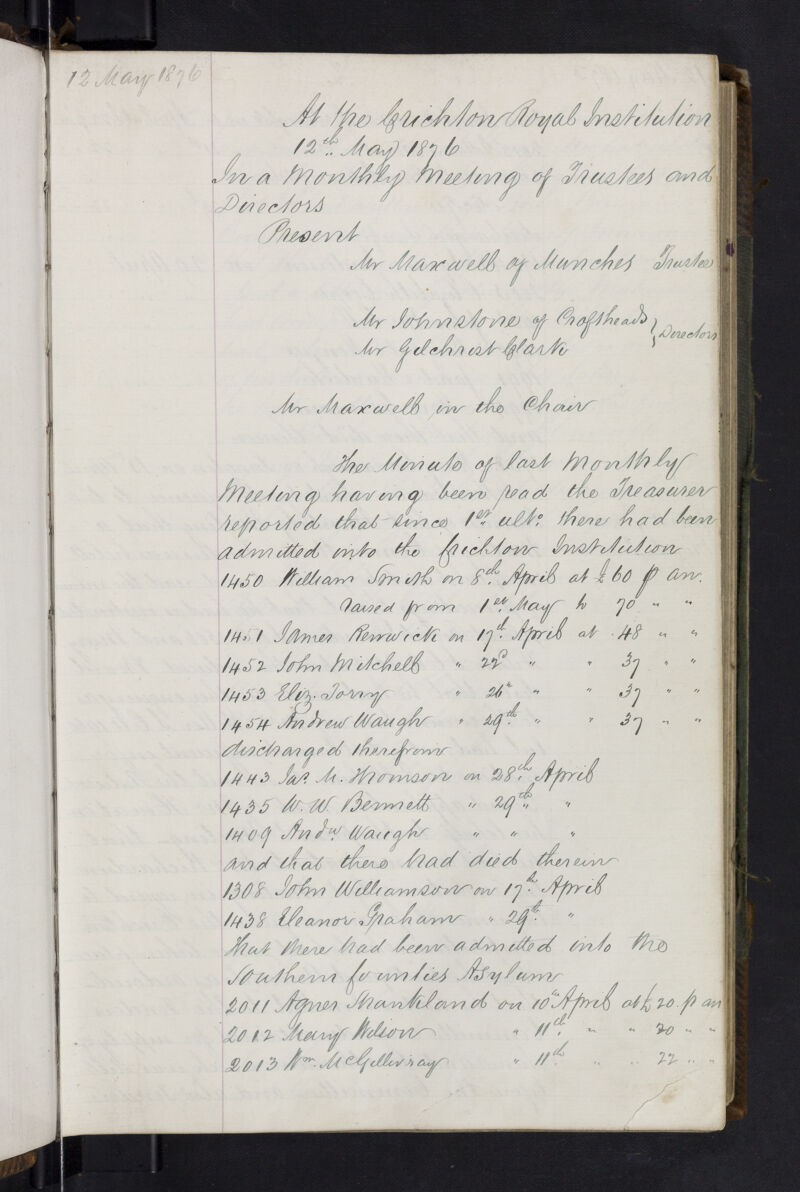 12 May 1876
At the Crichton Royal Institution
12th May 1876
In a Monthly Meeting of Trustees and
Directors
Present
Mr Maxwell of Munches Trustee
Mr Johnstone of Croftheads } Directors
Mr Gilchrist Clark
Mr Maxwell in the Chair
The Minute of last Monthly
Meeting having been read the Treasurer
reported that since 1st ulto. there had been
admitted into the Crichton Institution
1450 William Smith on 8th April at £60 p an.
raised from 1st May to 70 " "
1451 James Renwick on 17th April at 48 " "
1452 John Mitchell " 22d " " 37 " "
1453 Eliz. Torry " 26" " " 37 " "
1454 Andrew Waugh " 29th " " 37 " "
discharged therefrom
1443 Jas. M. Thomson on 28th April
1435 W. W. Bennett " 29th "
1409 Andw Waugh " " "
and that there had died therein
1308 John Williamson on 17th April
1438 Eleanor Graham " 29th "
That there had been admitted into the
Southern Counties Asylum
2011 Agnes Shankland on 10" April at £20. p an
2012 Mary Wilson " 11th " " 20 " "
2013 Wm. McGillivray " 11th " " 22 " "